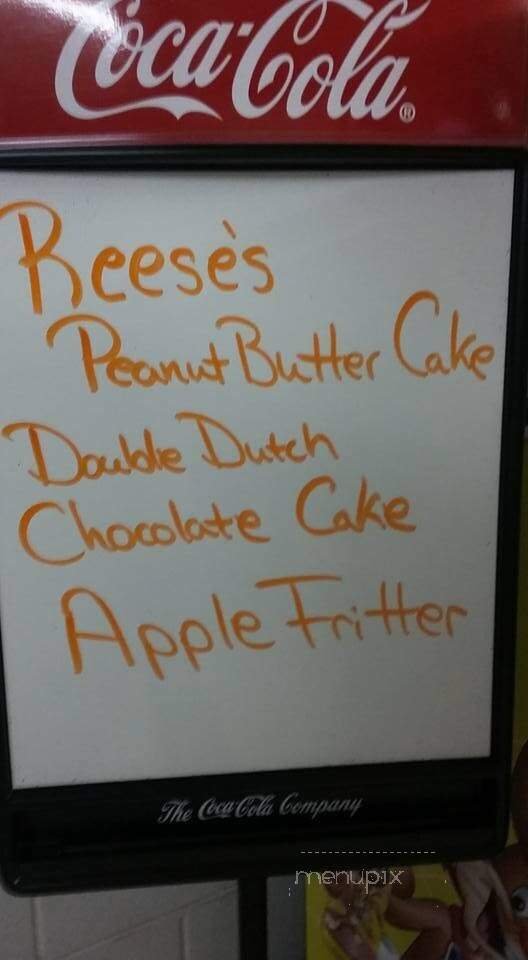 Coca-Cola®
Reese's
Peanut Butter Cake
Double Dutch
Chocolate Cake
Apple Fritter
The Coca-Cola Company
menupix